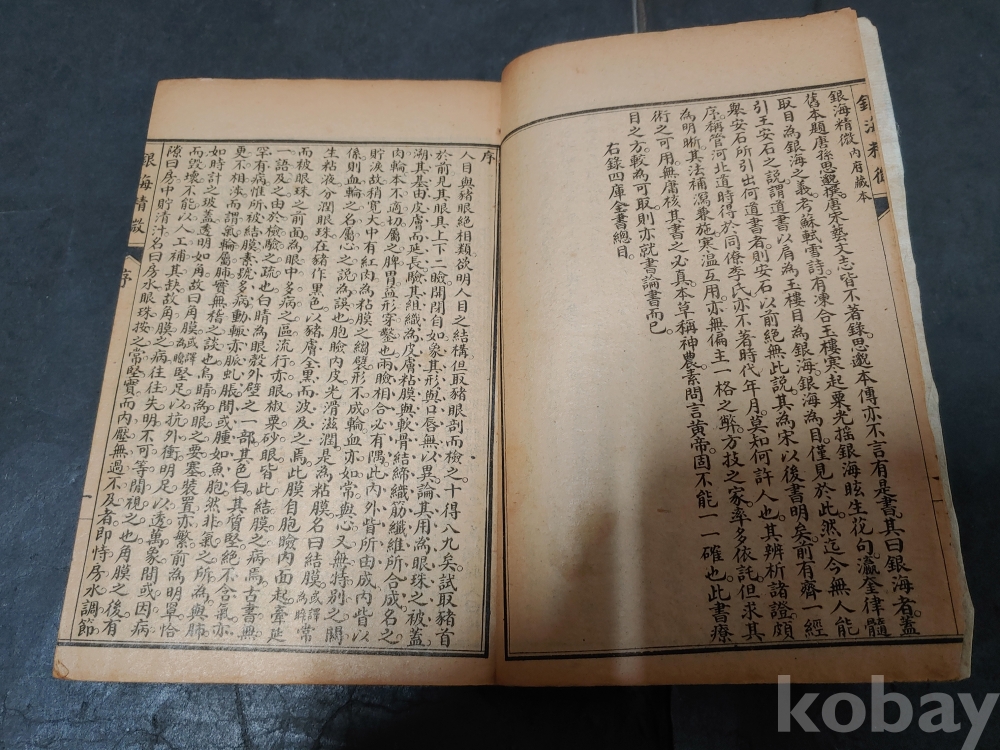 銀海精微
銀海精微 內府藏本
舊本題唐孫思邈撰。唐宋藝文志皆不著錄。思邈本傳亦不言有是書。其曰銀海者。蓋
取目為銀海之義。考蘇軾雪詩。有凍合玉樓寒起粟。光搖銀海眩生花句。瀛奎律髓
引王安石之說。謂道書以肩為玉樓。目為銀海。銀海為目。僅見於此。然迄今無人能
舉安石所引出何道書者。則安石以前絕無此說。其為宋以後書明矣。前有齊一經
序。稱管河北道時得於同僚李氏。亦不著時代年月。莫知何許人也。其辨析諸證。頗
為明晰。其法補瀉兼施。寒溫互用。亦無偏主一格之弊。方技之家。率多依託。但求其
術之可用。無庸核其書之必真。本草稱神農。素問言黃帝。固不能一一確也。此書療
目之方。較為可取。則亦就書論書而已。
右錄四庫全書總目。
序
人目與豬眼絕相類。欲明人目之結構。但取豬眼剖而檢之。十得八九矣。試取豬首
於前。見其眼具上下二瞼。開閉自如。象其形。與口唇無以異。論其用。為眼珠之被蓋。
溯其基。由皮膚而延長。驗其組織。為皮膚粘膜與軟骨結締織筋纖維所合成。名之
肉輪。本不適切。屬之脾胃。益形穿鑿也。兩瞼相合。必有隅。此內外眥所由成。內眥以
貯淚。故稍寬大。中有紅肉。為粘膜之縐襞。形不成輪。血亦如常。與心又無特別之關
係。則血輪之名。屬心之說。為誤也。胞瞼內皮。光滑滋潤。是為粘膜。名曰結膜。或譯為睛常
生粘液。分潤眼珠。在豬作黑色。以豬膚全黑。而波及之焉。此膜自胞瞼內面起。牽延
而被眼珠之前面。為眼中多病之區。流行赤眼椒粟砂眼。皆此結膜之病焉。古書無
一語及之。由於檢驗之疏也。白睛為眼殼外壁之一部。其色白。其質堅。絕不含氣。亦
罕有病。惟所被結膜。素號多病。動輒赤脈虬脹。間或腫如魚胞然。非氣之所為。與肺
更不相涉。而謂氣輪屬肺。實無稽之談也。烏睛為眼之要塞。裝置亦繁。前為明罩。恰
如時計之玻蓋。透明如角。故曰角膜。或譯為瞼堅足以抗外衝。明足以透萬象。間或因病
而毀壞。不能以人工補其缺。故角膜之病。往往失明。不可等閒視之也。角膜之後有
隙。曰房。中貯清汁。名曰房水。眼珠按之常堅實。而內壓無過不及者。即恃房水調節
銀海精微
序
一
kobay